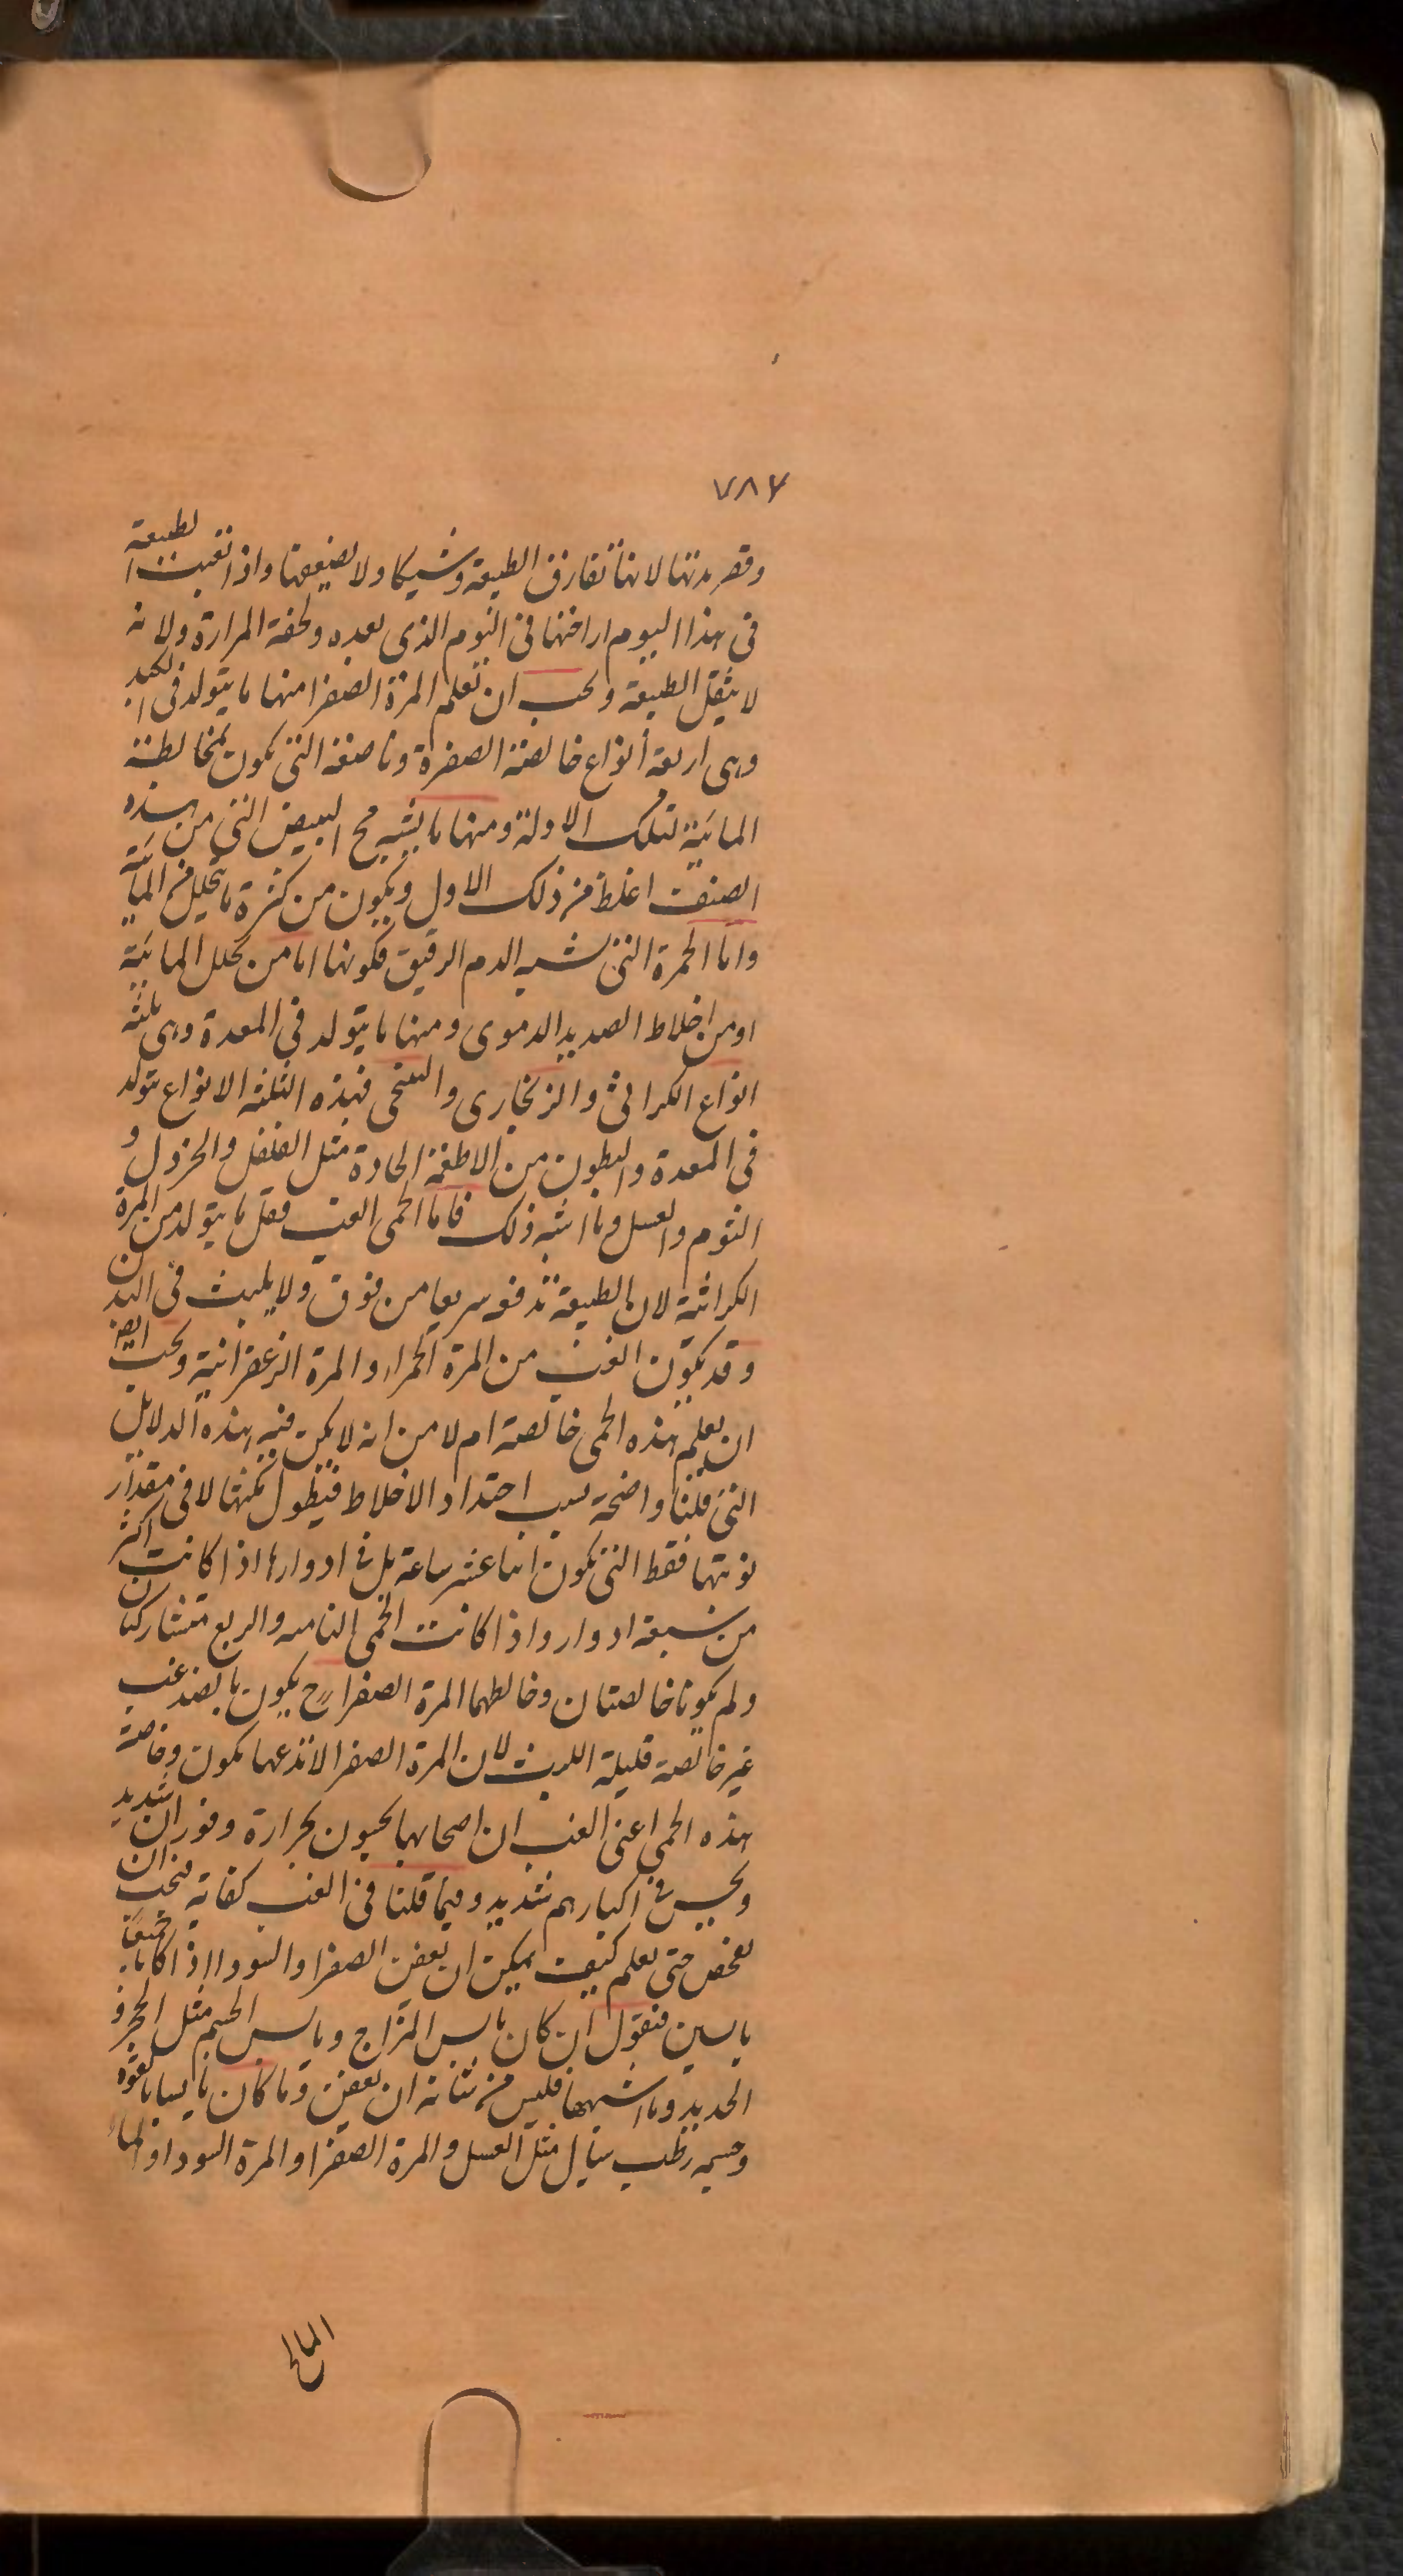 ٧٨٧
وقصر مدتها لانها تفارق الطبيعة وشيكا ولا تضيعها واذا تعبت الطبيعة
فى هذا اليوم اراحتها فى اليوم الذى بعده ولخفة المرارة ولانه
لا يثقل الطبيعة ويجب ان تعلم المرة الصفرا منها ما يتولد فى الكبد
وهى اربعة أنواع خالصة الصفرة وناصعة التى تكون بمخالطة
المائية لتلك الاولة ومنها ما يشبه مح البيض التى من هذه
الصنف اغلظ من ذلك الاول ويكون من كثرة ما تحليل من المائية
واما الحمرة التى تشبه الدم الرقيق فكونها اما من تحلل المائية
او من اخلاط الصديد الدموى ومنها ما يتولد فى المعدة وهى ثلثة
انواع الكراثى والزنجارى والنيلنجى فهذه الثلثة الانواع تتولد
فى المعدة والبطون من الاطعمة الحادة مثل الفلفل والخردل و
الثوم والعسل وما اشبه ذلك فاما الحمى الغب فقل ما يتولد من المرة
الكراثية لان الطبيعة تدفعه سريعا من فوق ولا يلبث فى البدن
وقد يكون الغب من المرة الحمراء والمرة الزعفرانية ويجب ايضا
ان يعلم هذه الحمى خالصة ام لا من انه لا يكن فيه هذه الدلايل
التى قلنا واضحة بسبب احتداد الاخلاط فيطول مكثها لا فى مقدار
نوبتها فقط التى تكون اثنا عشر ساعة بل فى ادوارها اذا كانت اكثر
من سبعة ادوار واذا كانت الحمى النامه والربع متشاركتان
ولم يكونا خالصتان وخالطهما المرة الصفرا رح يكون بالضد غب
غير خالصة قليلة اللبث لان المرة الصفرا لا تدعها تكون وخاصة
هذه الحمى اعنى الغب ان اصحابها يحسون بحرارة وفوران شديد
ويحس فى اكبارهم شديد وفيما قلنا فى الغب كفاية فيجب ان
نفحص حتى نعلم كيف يمكن ان يعفن الصفرا والسودا اذا كانا جميعا
يابسين فنقول ان كان يابس المزاج ويابس الجسم مثل الحجر و
الحديد وما اشبهها فليس من شانه ان يعفن وما كان يابسا بالقوة
وجسمه رطب سيال مثل العسل والمرة الصفرا والمرة السودا والماء
المالح